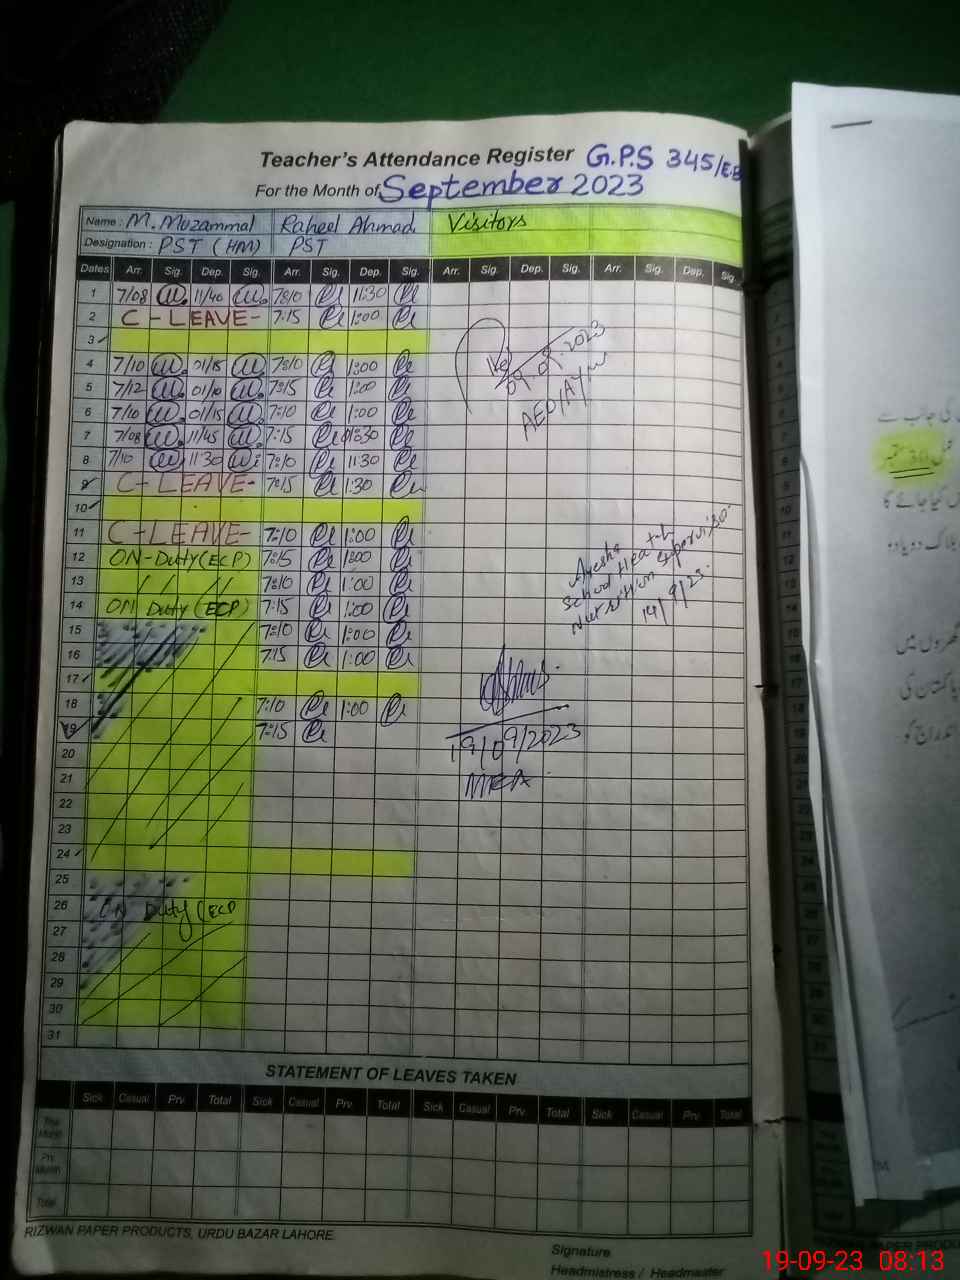 Teacher's Attendance Register G.P.S 345/E.B
For the Month of September 2023
Name : M. Muzammal Raheel Ahmad Visitors
Designation : PST (HM) PST
Dates Arr. Sig. Dep. Sig. Arr. Sig. Dep. Sig. Arr. Sig. Dep. Sig. Arr. Sig. Dep. Sig.
1 7/08 11/40 11:30
2 C-LEAVE- 7:15 1:00
3
4 7/10 01/15 1:00
5 7/12 01/10 7:15 1:00
6 7/10 01/15 7:10 1:00
7 7/08 11/45 7:15
8 7/10 11:30 7:10 11:30
9 C-LEAVE- 7:15 1:30
10
11 C-LEAVE- 7:10 1:00
12 ON-Duty(ECP) 7:15 1:00
13 7:10 1:00
14 ON Duty (ECP) 7:15 1:00
15 7:10 1:00
16 7:15 1:00
17
18 7:10 1:00
19 7:15
20
21
22
23
24
25
26 ON Duty (ECP
27
28
29
30
31
09.09.2023
AEO
Ayesha
School Health
Nutrition Supervisor
14/9/23
19/09/2023
MEA
STATEMENT OF LEAVES TAKEN
Sick Casual Prv. Total Sick Casual Prv. Total Sick Casual Prv. Total Sick Casual Prv. Total
This Month
Prv. Month
Total
RIZWAN PAPER PRODUCTS, URDU BAZAR LAHORE
Signature
Headmistress / Headmaster
کی جانب سے
گھروں میں
پاکستان کی
19-09-23 08:13